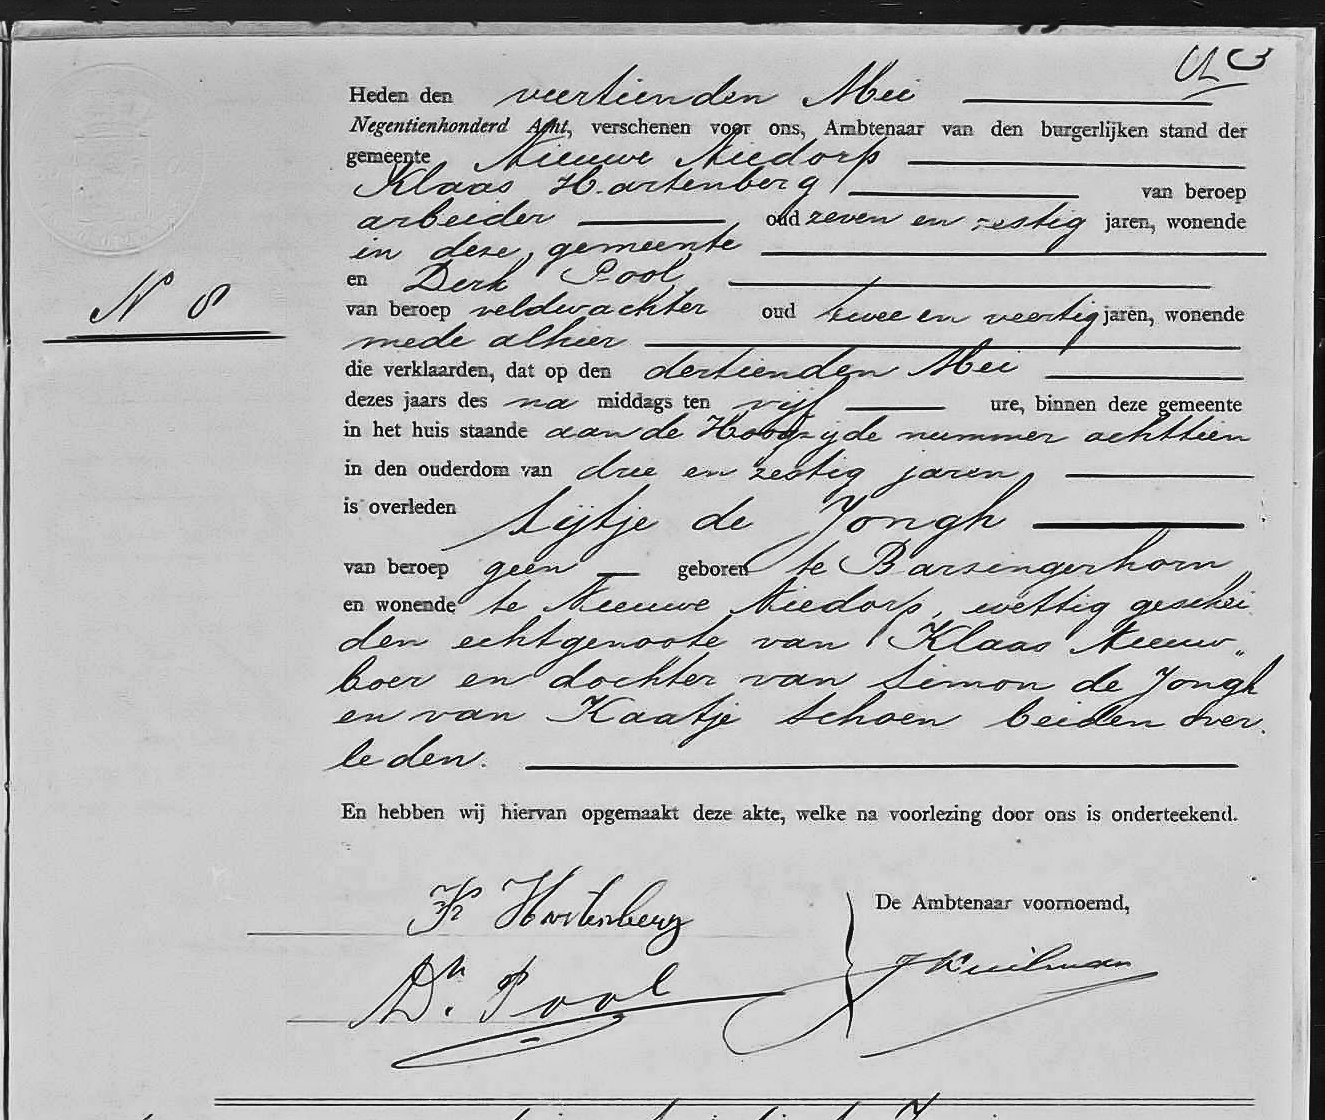 Heden den veertienden Mei
Negentienhonderd Acht, verschenen voor ons, Ambtenaar van den burgerlijken stand der
gemeente Nieuwe Niedorp
Klaas Hartenberg van beroep
arbeider oud zeven en zestig jaren, wonende
in deze gemeente
en Derk Pool,
van beroep veldwachter oud twee en veertig jaren, wonende
mede alhier
die verklaarden, dat op den dertienden Mei
dezes jaars des na middags ten vijf ure, binnen deze gemeente
in het huis staande aan de Hoogzijde nummer achttien
in den ouderdom van drie en zestig jaren,
is overleden Sijtje de Jongh
van beroep geen geboren te Barsingerhorn
en wonende te Nieuwe Niedorp, wettig geschei
den echtgenoote van Klaas Nieuw„
boer en dochter van Simon de Jongh
en van Kaatje Schoen beiden over.
leden.
N 8
En hebben wij hiervan opgemaakt deze akte, welke na voorlezing door ons is onderteekend.
K Hartenberg
De Ambtenaar voornoemd,
JKuilman
Dk. Pool